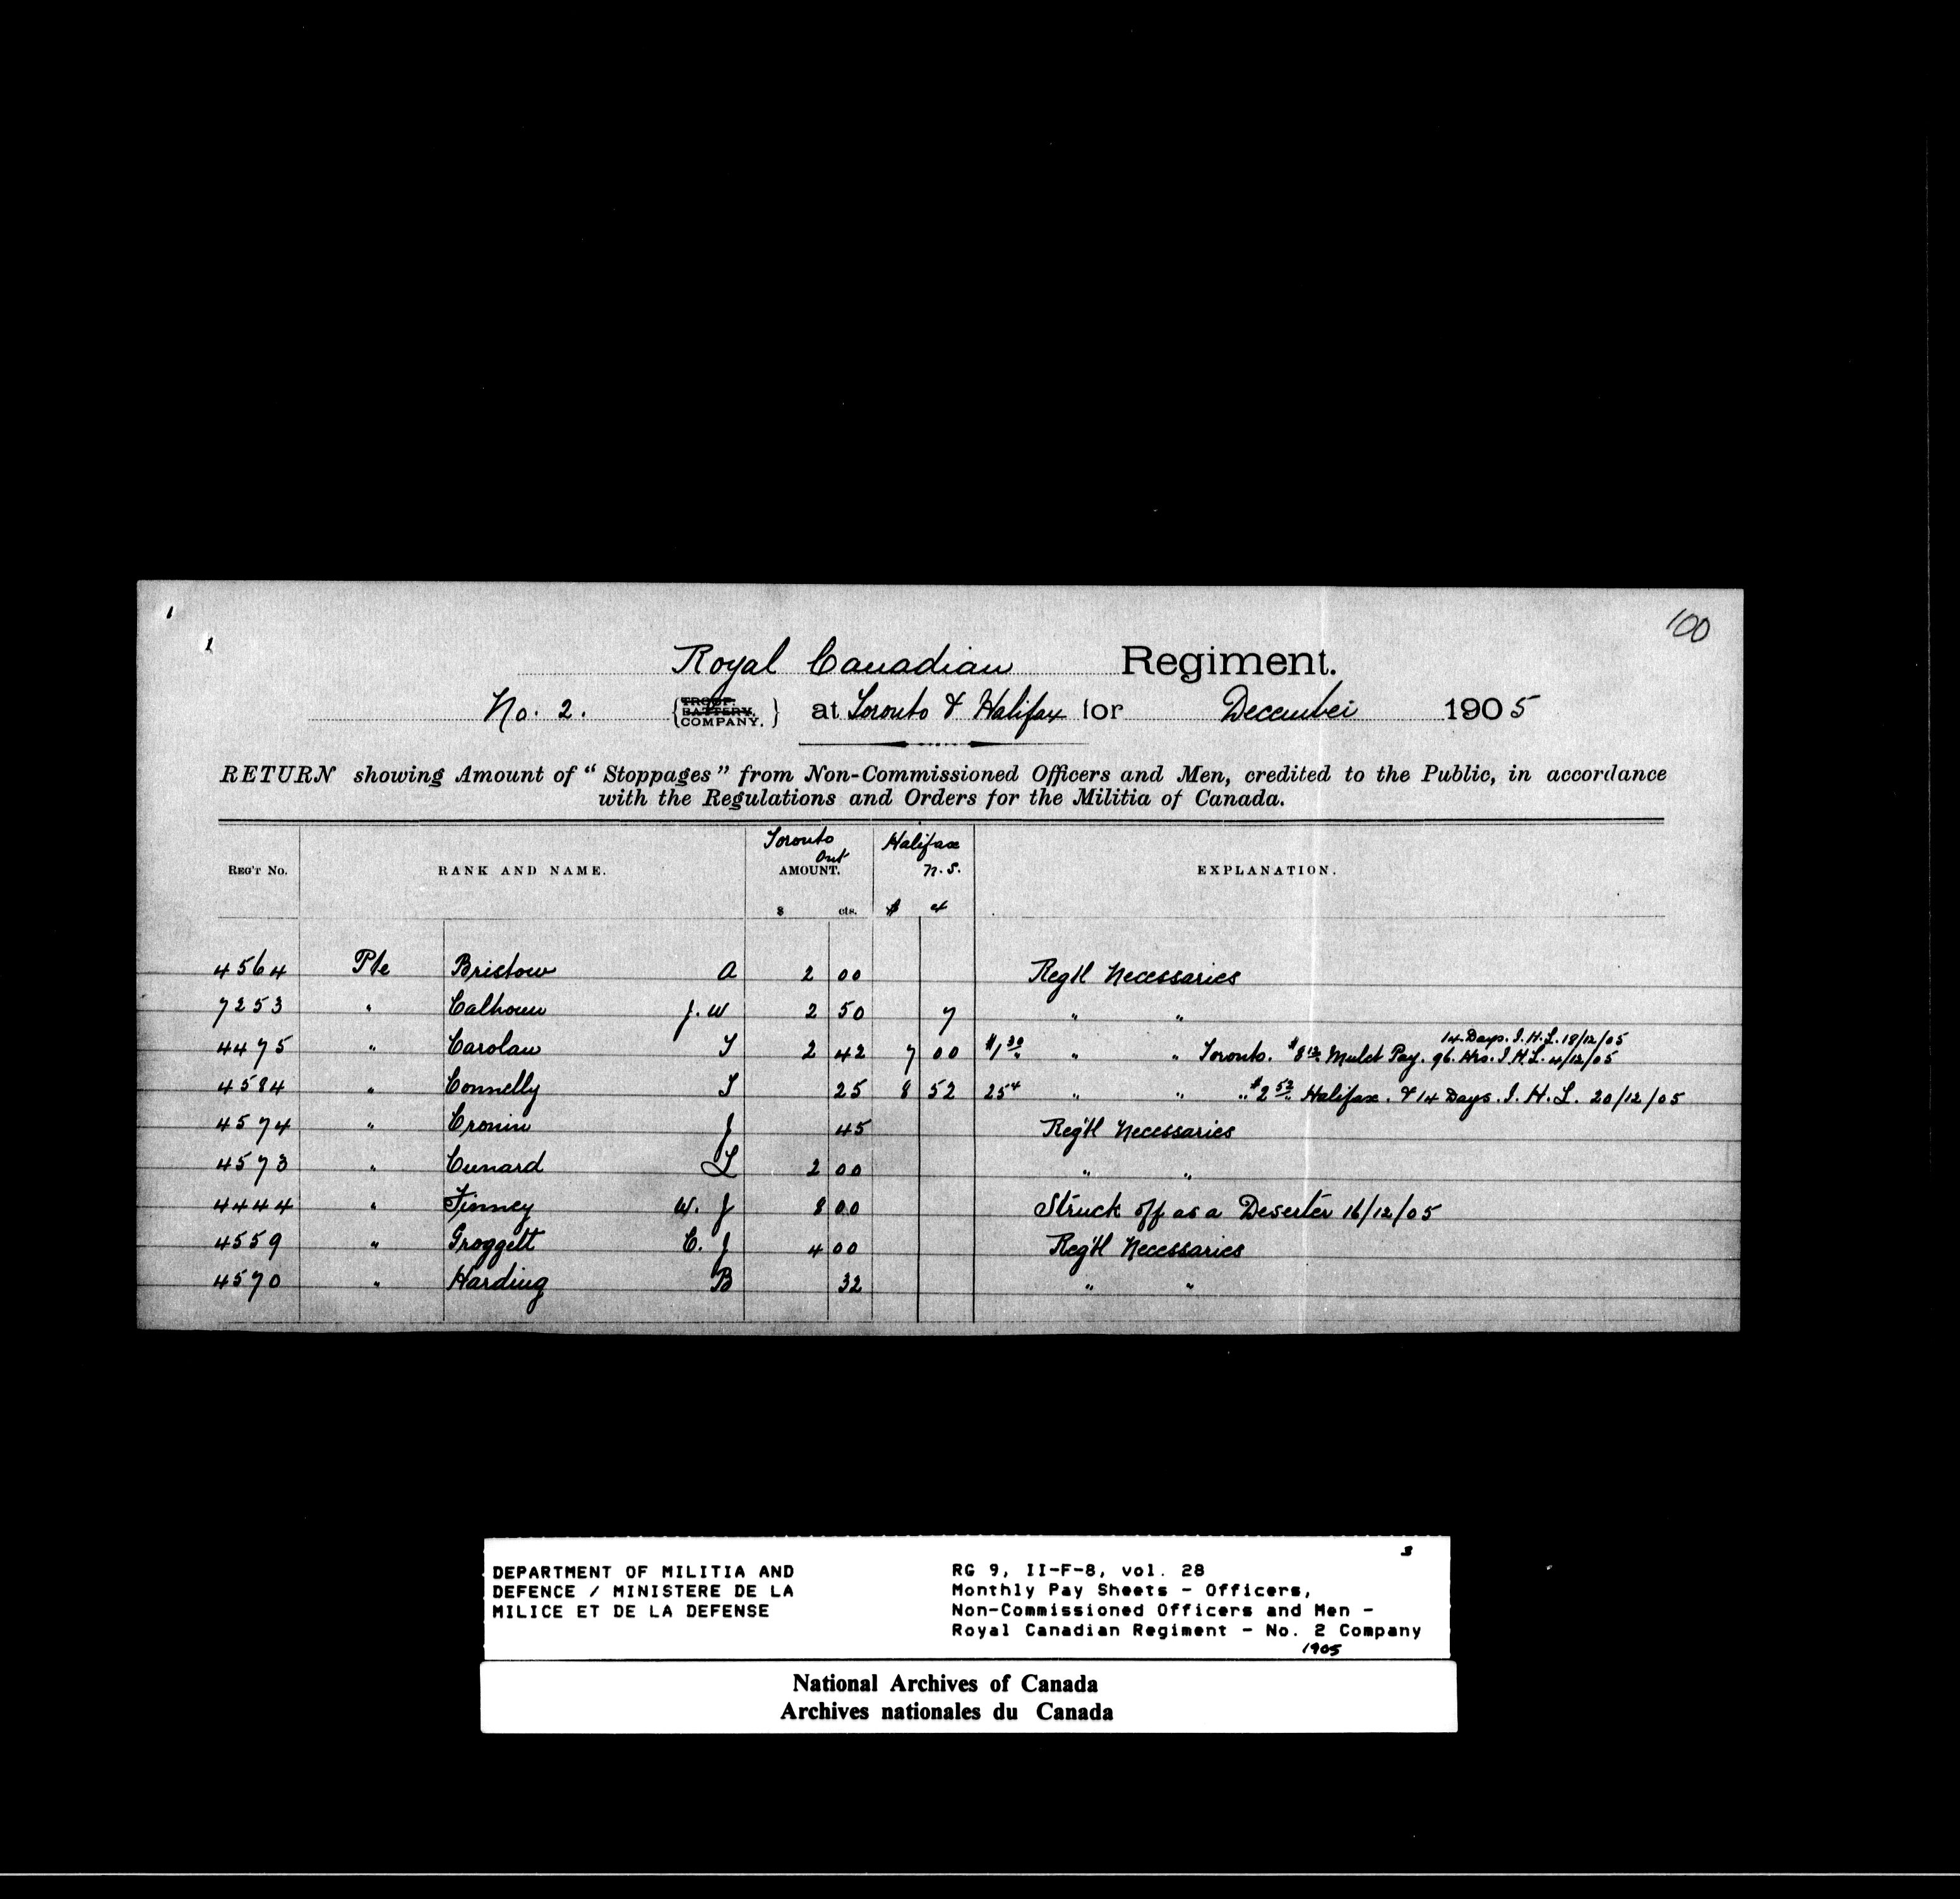 100
Royal Canadian Regiment.
No. 2. {TROOP. BATTERY. COMPANY.} at Toronto & Halifax for December 1905
RETURN showing Amount of "Stoppages" from Non-Commissioned Officers and Men, credited to the Public, in accordance
with the Regulations and Orders for the Militia of Canada.
Toronto Ont Halifax N.S.
REG'T No. RANK AND NAME. AMOUNT. EXPLANATION.
$ cts. $ ct
4564 Pte Bristow A 2 00 Reg'l Necessaries
7253 " Calhoun J. W 2 50 7 " "
14 Days. I. H. L. 18/12/05
4475 " Carolan T 2 42 7 00 " " Toronto. Mulct Pay. 96 Hrs. I. H. L. 4/12/05
4584 " Connelly T 25 8 52 25¢ " " " $2 52 Halifax. & 14 Days. I. H. L. 20/12/05
4574 " Cronin J 45 Reg'l Necessaries
4573 " Cunard L 2 00 " "
4444 " Finney W. J 8 00 Struck off as a Deserter 16/12/05
4559 " Groggett C. J 4 00 Reg'l Necessaries
4570 " Harding B 32 " "
3
DEPARTMENT OF MILITIA AND
DEFENCE / MINISTERE DE LA
MILICE ET DE LA DEFENSE
RG 9, II-F-8, vol. 28
Monthly Pay Sheets - Officers,
Non-Commissioned Officers and Men -
Royal Canadian Regiment - No. 2 Company
1905
National Archives of Canada
Archives nationales du Canada